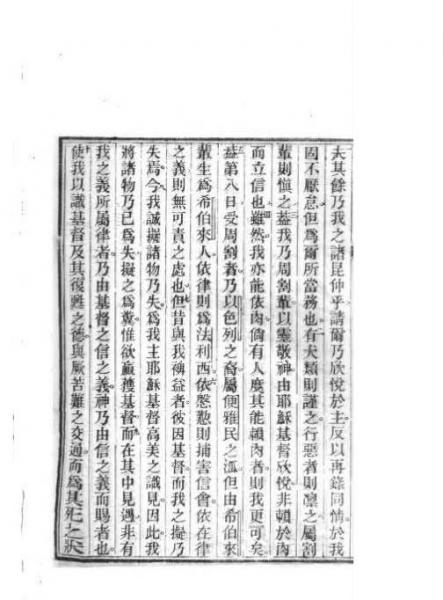 夫其餘乃我之諸昆仲乎請爾乃欣悅於主反以再錄同情於我
固不厭怠但爲爾所當務也有犬類則謹之行惡者則凜之屬割
輩則慎之蓋我乃周割輩以靈敬神由耶穌基督欣悅非賴於肉
而立信也雖然我亦能依肉倘有人度其能賴肉者則我更可矣
蓋第八日受周割者乃以色列之裔屬便雅民之派但由希伯來
輩生爲希伯來人依律則爲法利西依慇懃則捕害信會依在律
之義則無可責之處也但昔與我裨益者彼因基督而我之擬乃
失焉今我誠擬諸物乃失爲我主耶穌基督高美之識見因此我
將諸物乃已爲失擬之爲糞惟欲贏獲基督而在其中見遇非有
我之義所屬律者乃由基督之信之義神乃由信之義而賜者也
使我以識基督及其復甦之德與厥苦難之交通而爲其死之狀